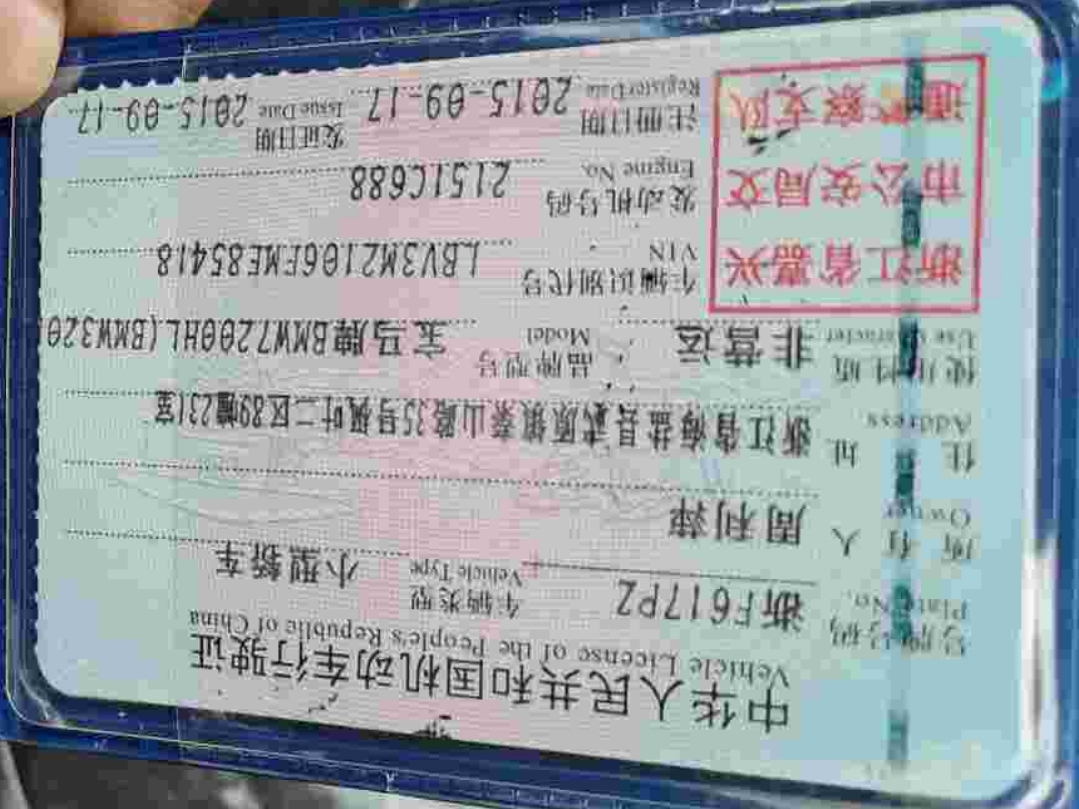 中华人民共和国机动车行驶证
Vehicle License of the People's Republic of China
号牌号码 浙F617PZ 车辆类型 小型轿车
Plate No. Vehicle Type
所有人 周利萍
Owner
住址 浙江省海盐县武原镇秦山路35号枫叶二区89幢231室
Address
使用性质 非营运 品牌型号 宝马牌BMW7200HL(BMW320
Use Character Model
浙江省嘉兴
市公安局交
通警察支队
车辆识别代号 LBV3M2106FME85418
VIN
发动机号码 2151C688
Engine No.
注册日期 2015-09-17 发证日期 2015-09-17
Register Date Issue Date